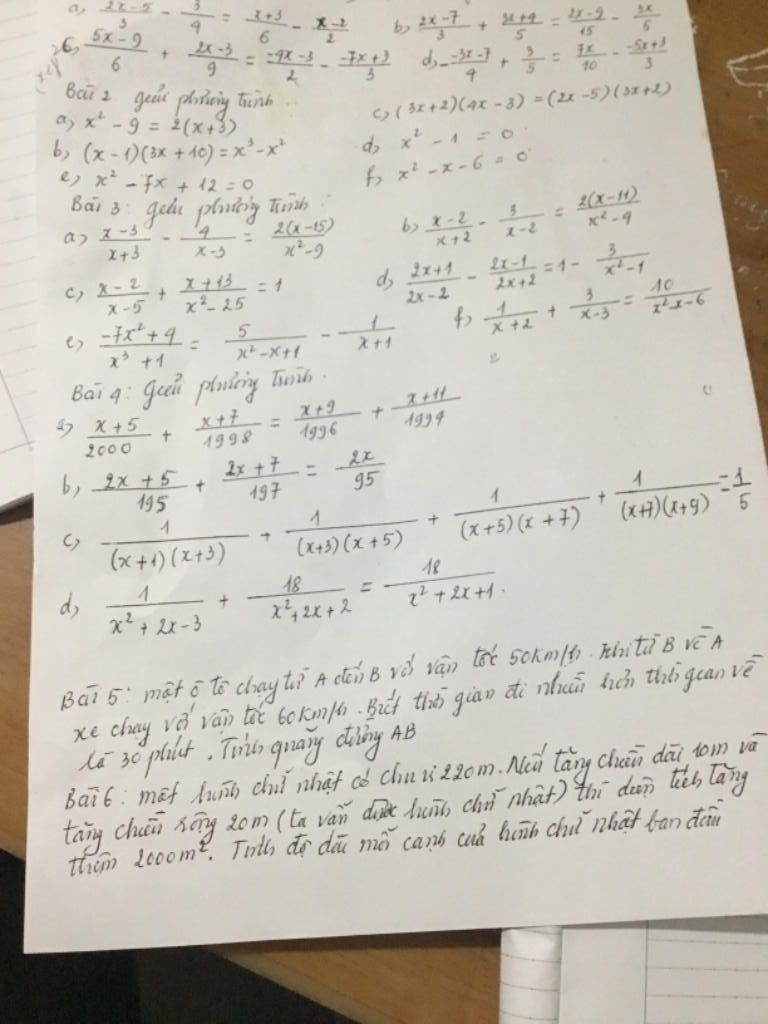 a, \frac{2x-5}{3} - \frac{3}{4} = \frac{x+3}{6} - \frac{x-2}{2}
b, \frac{2x-7}{3} + \frac{3x+4}{5} = \frac{2x-9}{15} - \frac{3x}{5}
c, \frac{5x-9}{6} + \frac{2x-3}{9} = \frac{-4x-3}{2} - \frac{-7x+3}{3}
d, \frac{-3x-7}{4} + \frac{3}{5} = \frac{7x}{10} - \frac{-5x+3}{3}
Bài 2 giải phương trình
a, x² - 9 = 2(x+3)
c, (3x+2)(4x-3) = (2x-5)(3x+2)
b, (x-1)(3x+10) = x³ - x²
d, x² - 1 = 0
e, x² - 7x + 12 = 0
f, x² - x - 6 = 0
Bài 3: giải phương trình:
a, \frac{x-3}{x+3} - \frac{4}{x-3} = \frac{2(x-15)}{x²-9}
b, \frac{x-2}{x+2} - \frac{3}{x-2} = \frac{2(x-11)}{x²-4}
c, \frac{x-2}{x-5} + \frac{x+13}{x²-25} = 1
d, \frac{2x+1}{2x-2} - \frac{2x-1}{2x+2} = 1 - \frac{3}{x²-1}
e, \frac{-7x²+4}{x³+1} = \frac{5}{x²-x+1} - \frac{1}{x+1}
f, \frac{1}{x+2} + \frac{3}{x-3} = \frac{10}{x²-x-6}
Bài 4: Giải phương trình.
a, \frac{x+5}{2000} + \frac{x+7}{1998} = \frac{x+9}{1996} + \frac{x+11}{1994}
b, \frac{2x+5}{195} + \frac{2x+7}{197} = \frac{2x}{95}
c, \frac{1}{(x+1)(x+3)} + \frac{1}{(x+3)(x+5)} + \frac{1}{(x+5)(x+7)} + \frac{1}{(x+7)(x+9)} = \frac{1}{5}
d, \frac{1}{x²+2x-3} + \frac{18}{x²+2x+2} = \frac{18}{x²+2x+1}.
Bài 5: một ô tô chạy từ A đến B với vận tốc 50km/h. Khi từ B về A
xe chạy với vận tốc 60km/h. Biết thời gian đi nhiều hơn thời gian về
là 30 phút. Tính quãng đường AB
Bài 6: một hình chữ nhật có chu vi 220m. Nếu tăng chiều dài 10m và
tăng chiều rộng 20m (ta vẫn được hình chữ nhật) thì diện tích tăng
thêm 2000m². Tính độ dài mỗi cạnh của hình chữ nhật ban đầu